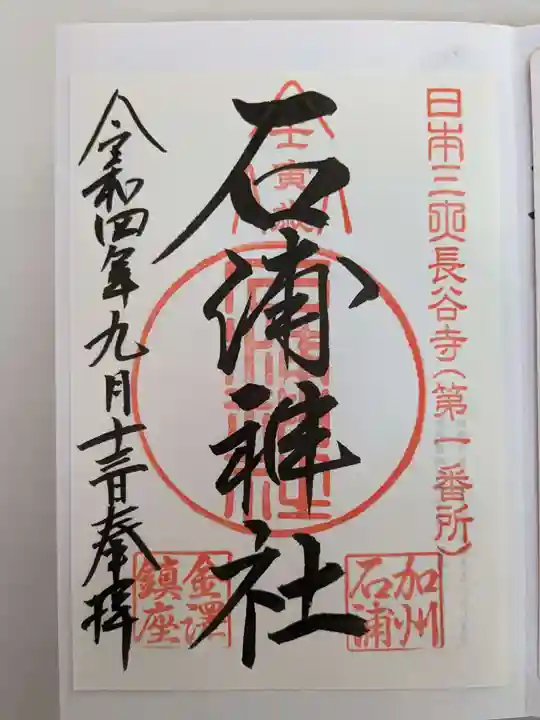 日本三所長谷寺(第一番所)
壬寅歳
石浦神社
石浦神社
加州
石浦
金澤
鎮座
令和四年九月十三日奉拝